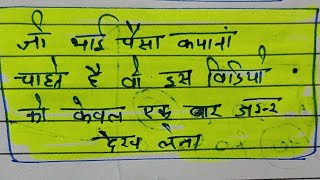 जो भाई पैसा कमाना
चाहते है वो इस विडियो
को केवल एक बार जरूर
देख लेना